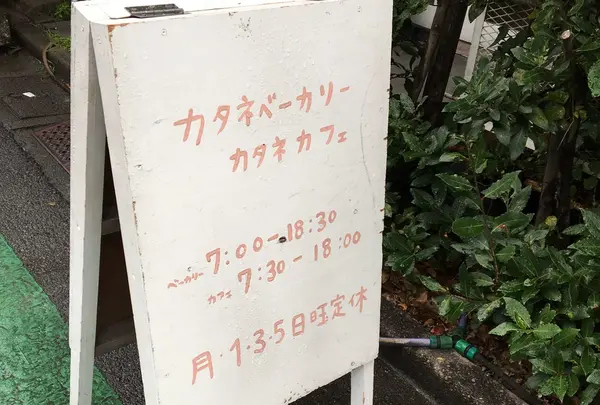 カタネベーカリー
カタネ カフェ
ベーカリー 7:00-18:30
カフェ 7:30-18:00
月・1・3・5日曜定休